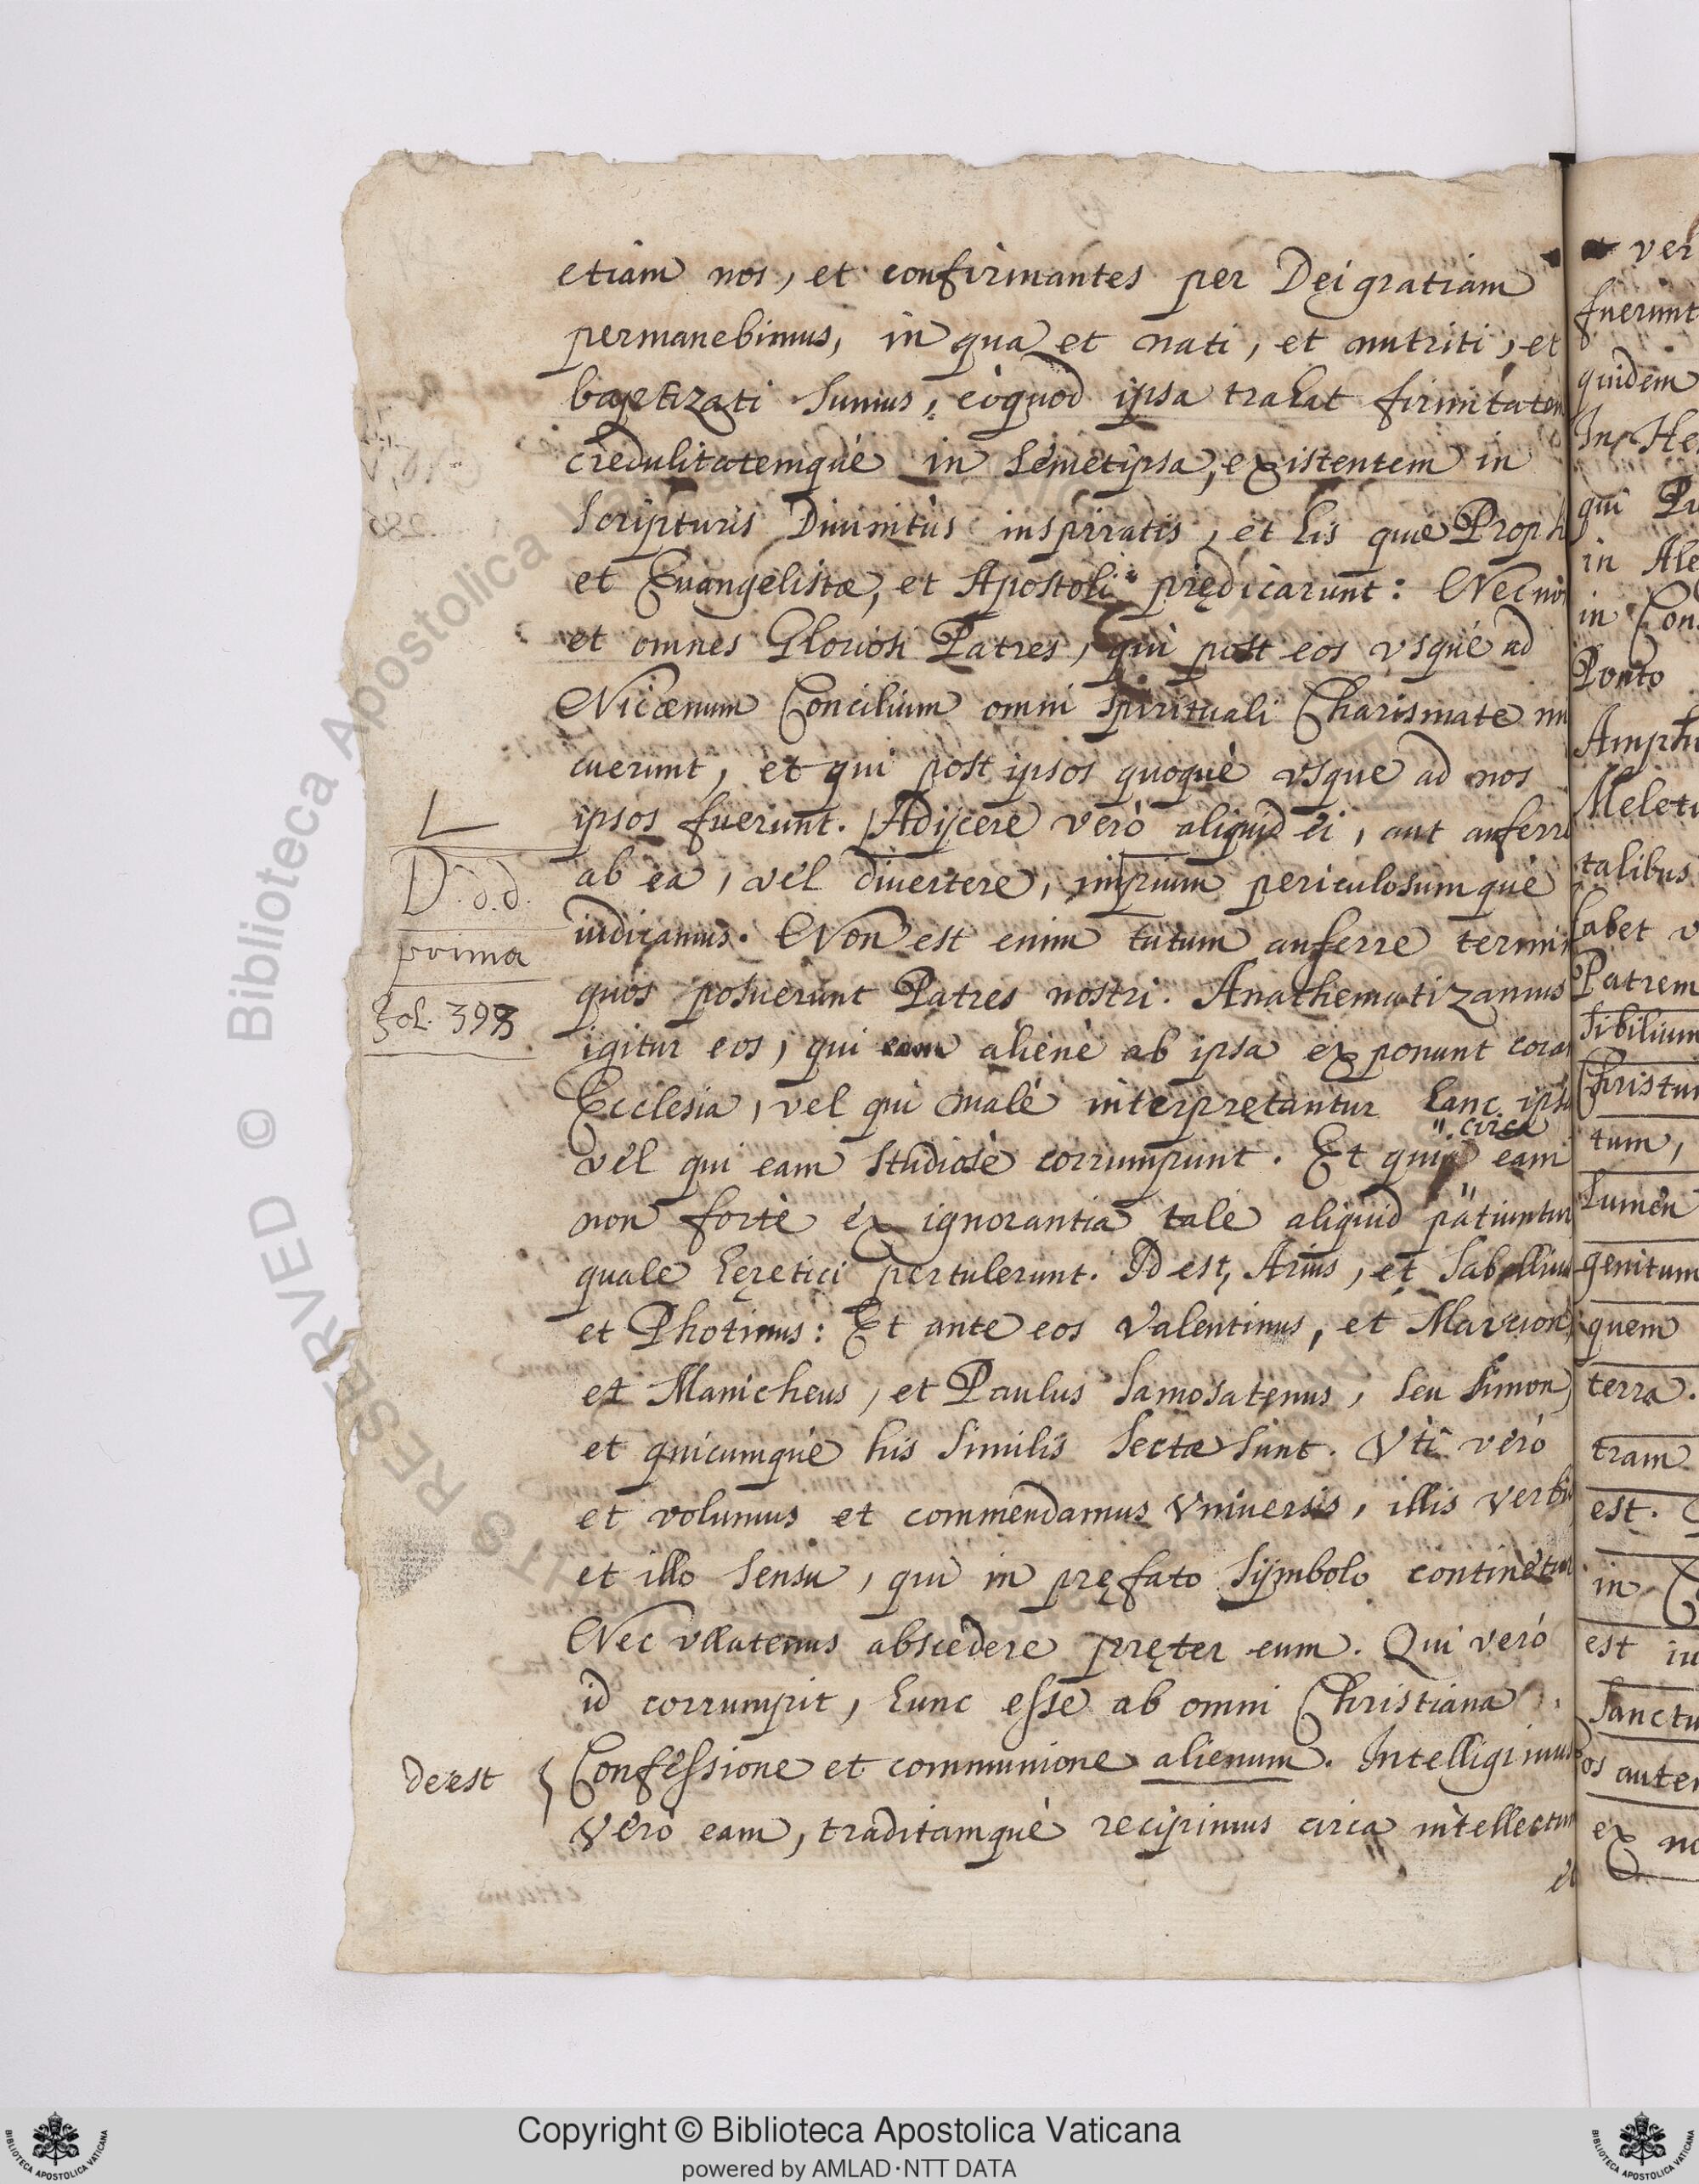 etiam nos, et confirmantes per Dei gratiam
permanebimus, in qua et nati, et nutriti, et
baptizati sumus, eòquod ipsa trahat firmitatem
credulitatemquè in semetipsa, existentem in
Scripturis Diuinitùs inspiratis, et his quæ Proph
et Euangelistæ, et Apostoli prędicarunt: Nec no
et omnes Gloriosi Patres, qui post eos vsque ad
Nicænum Concilium omni spirituali Charismate mi
cuerunt, et qui post ipsos quoquè vsque ad nos
ipsos fuerunt. Adijcere verò aliquid ei, aut auferre
ab ea, vel diuertere, impium periculosumque
iudicamus. Non est enim tutum auferre termin
quos posuerunt Patres nostri. Anathematizamus
igitur eos, qui eam alienè ab ipsa exponunt coram
Ecclesia, vel qui malè interprętantur hanc ipsa
vel qui eam studiosè corrumpunt. Et quia circa eam
non fortè ex ignorantia tale aliquid patiuntur
quale hęretici pertulerunt. Id est, Arius, et Sabellius
et Photinus: Et ante eos Valentinus, et Marcion
et Manicheus, et Paulus Samosatenus, seu Simon,
et quicumque his similis sectæ sunt. Vti verò
et volumus et commendamus Vniuersis, illis verbis
et illo sensu, qui in pręfato Sÿmbolo continetur
Nec vllatenus abscedere pręter eum. Qui verò
id corrumpit, hunc esse ab omni Christiana
Confessione et communione alienum. Intelligimus
Verò eam, traditamquè recipimus circa intellectum
et
L
D.d.d.
prima
fol. 393
deest
ver
fuerunt
quidem
In He
qui Pa
in Ale
in Con
Ponto
Amphi
Meleti
talibus
habet v
Patrem
sibilium
Christum
tum,
Lumen
genitum
quem
terra.
tram
est.
in
est iu
Sanctu
os autem
ex no
© Biblioteca Apostolica Vaticana
Copyright © Biblioteca Apostolica Vaticana
powered by AMLAD·NTT DATA
BIBLIOTECA APOSTOLICA VATICANA
BIBLIOTECA APOSTOLICA VATICANA